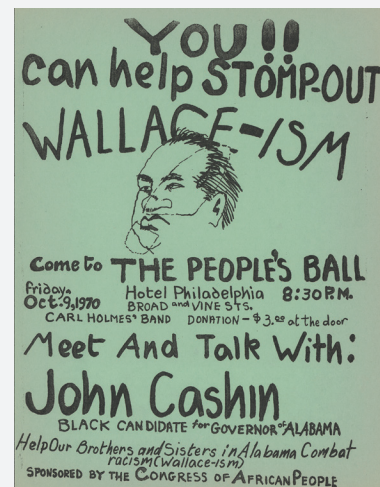 YOU!!
can help STOMP-OUT
WALLACE-ISM
Come to THE PEOPLE'S BALL
friday,
Oct. 9, 1970
Hotel Philadelphia 8:30 P.M.
BROAD and VINE STS.
CARL HOLMES' BAND DONATION - $3.00 at the door
Meet And Talk With:
John Cashin
BLACK CANDIDATE for GOVERNOR of ALABAMA
Help Our Brothers and Sisters in Alabama Combat
racism (Wallace-ism)
SPONSORED BY THE CONGRESS OF AFRICAN PEOPLE